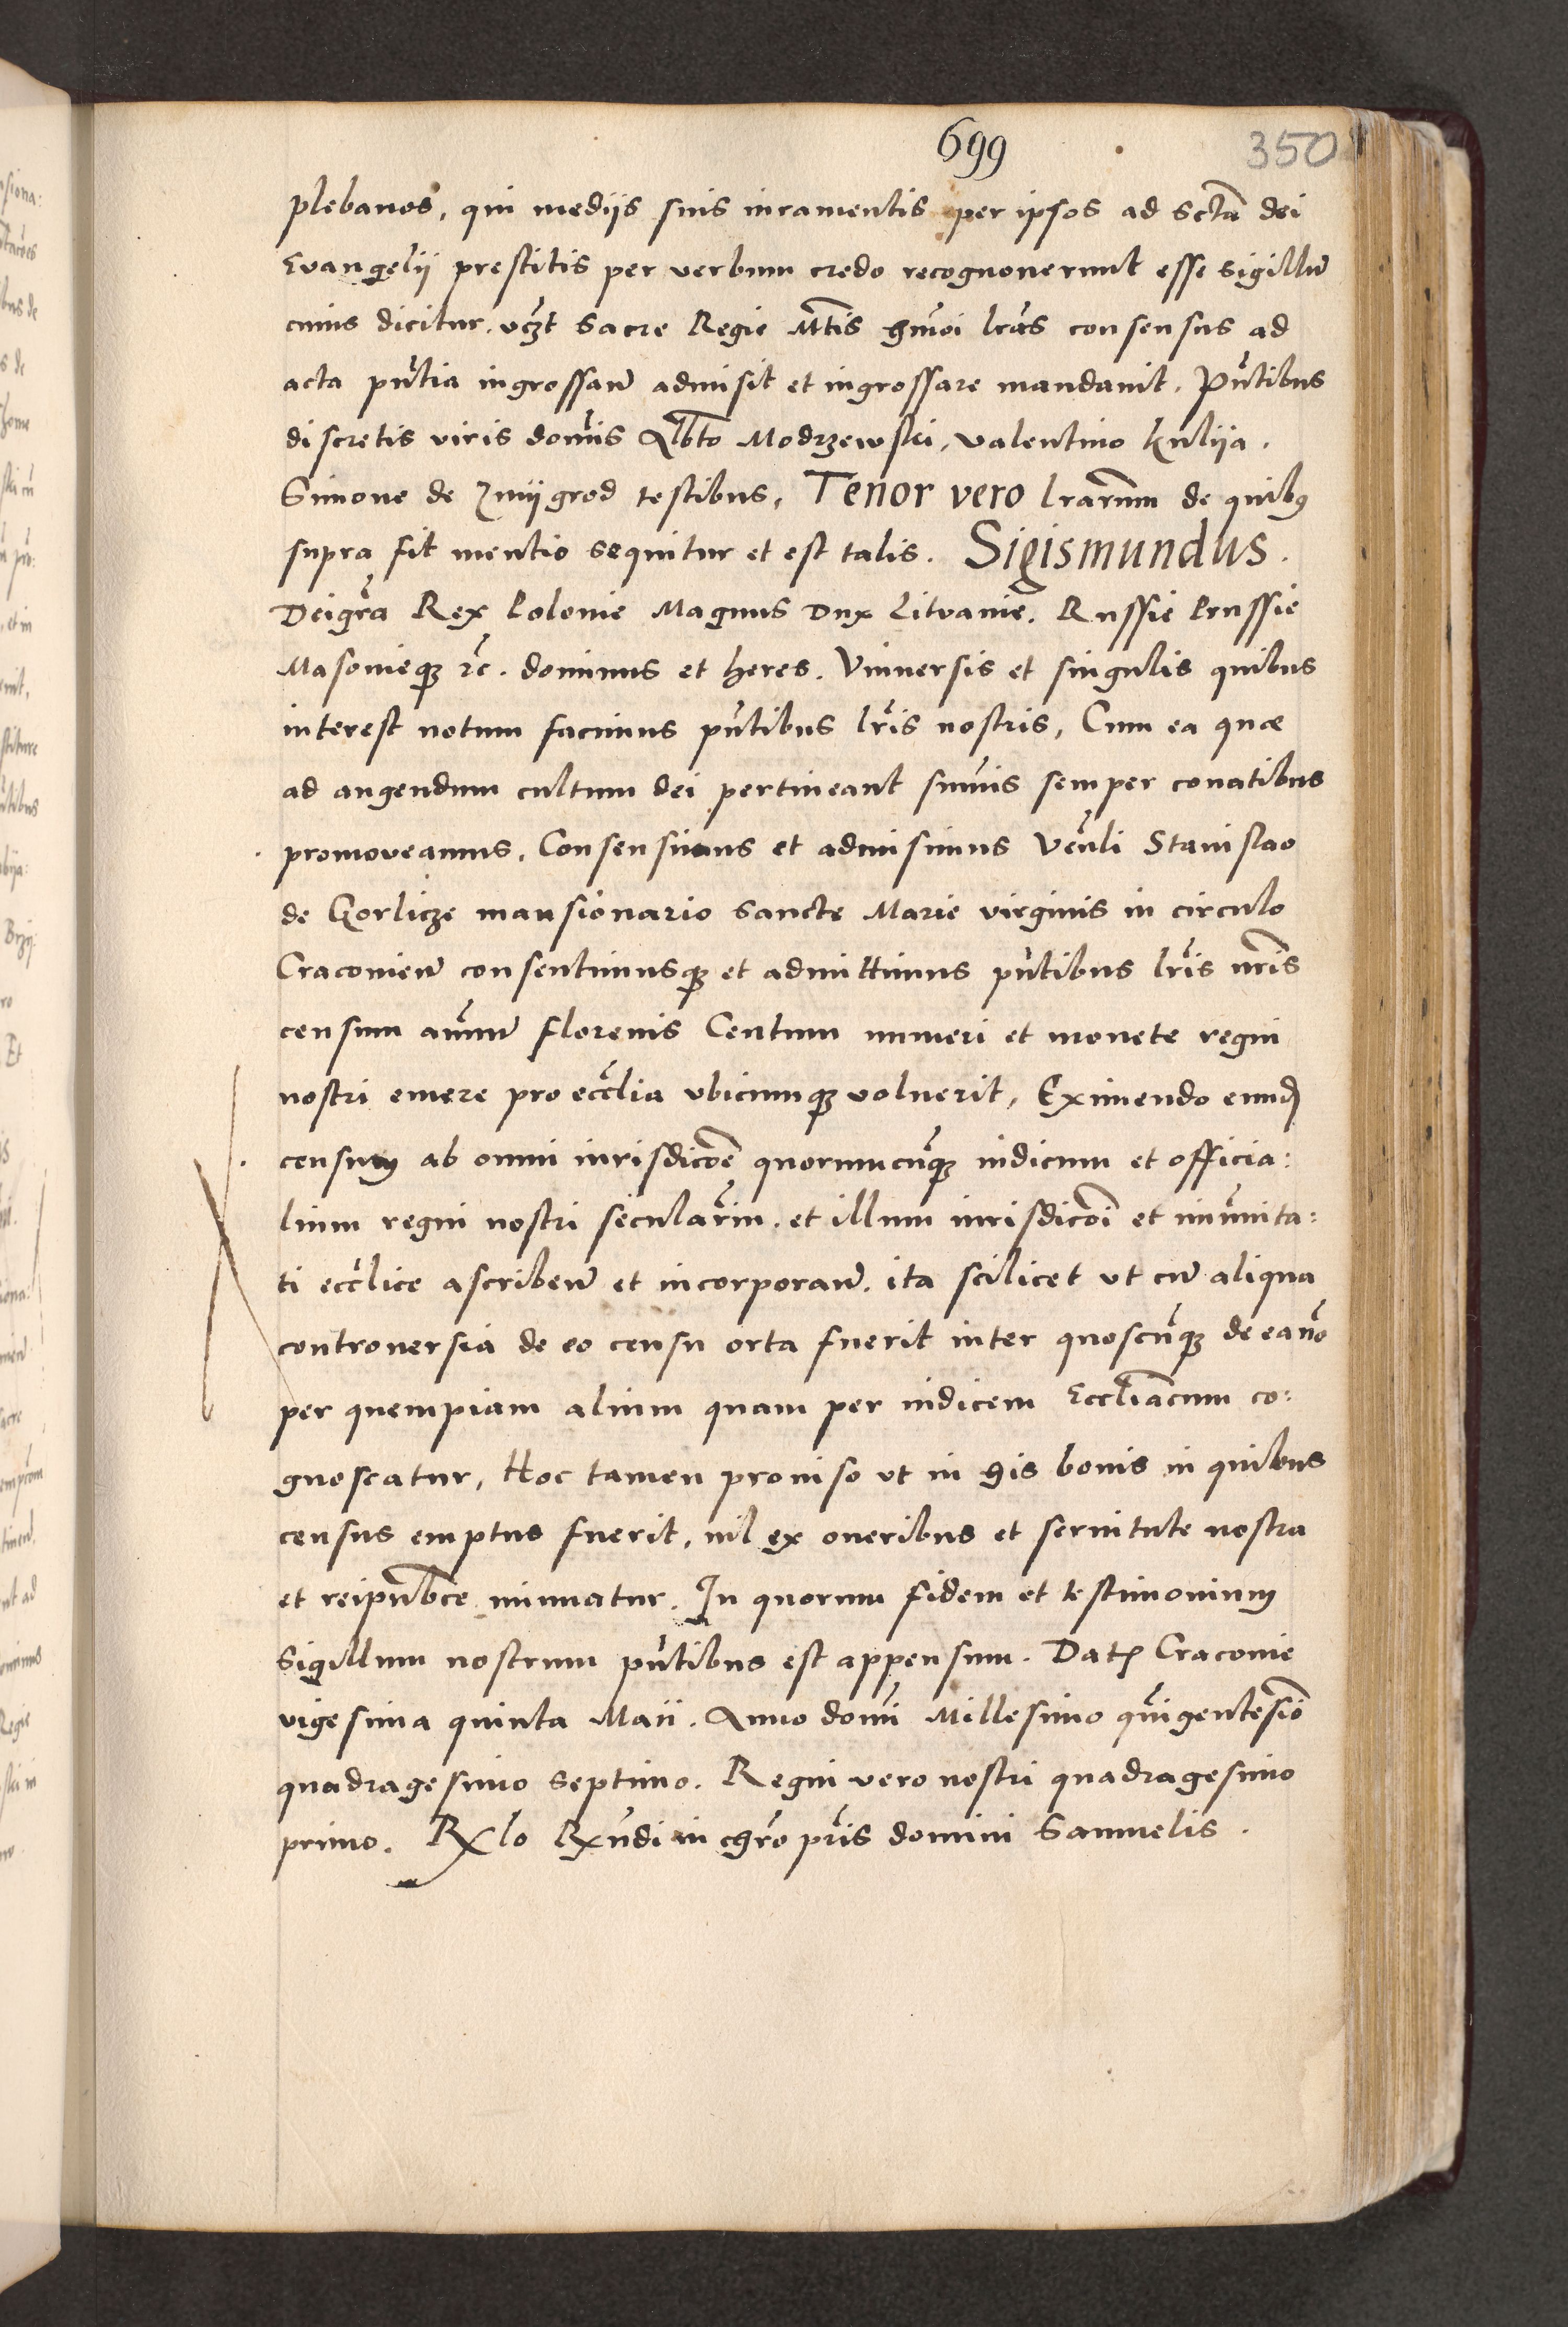 699
350
plebanos, qui medijs suis iuramentis per ipsos ad sctā dei
Evangelij prestitis per verbum credo recognouerunt esse sigillū
cuius dicitur. vcȝt Sacre Regie Mt̃is hm̃oi lrãs consensus ad
acta pñtia ingrossañ admisit et ingrossare mandauit. Pñtibus
discretis viris domĩs Albto Modrzewski, Valentino Kulija.
Simone de Zmijgrod testibus, Tenor vero lrarum de quibꝫ
supra fit mentio sequitur et est talis. Sigismundus.
Dei grã Rex Polonie Magnus Dux Litvanie. Russie Prussie
Masonieqꝫ ꝛc̃. dominus et heres. Vniuersis et singulis quibus
interest notum facimus pñtibus lrĩs nostris, Cum ea quæ
ad augendum cultum dei pertineant sum̃is semper conatibus
promoveamus, Consensimus et admisimus Veñli Stanislao
de Gorlicze mansionario Sancte Marie virginis in circulo
Cracovieñ consentimusqꝫ et admittimus pñtibus lrĩs nrĩs
censum anñuū florenis Centum numeri et monete regni
nostri emere pro eccľia vbicumqꝫ voluerit, Eximendo eund̃
censum ab omni iurisdicõe quorumcũqꝫ iudicum et officia:
lium regni nostri seculariũ. et illum iurisdicõi et imũnita:
ti eccľice ascribeñ et incorporañ. ita scilicet vt cū aliqua
controuersia de eo censu orta fuerit inter quoscũqꝫ de ea nõ
per quempiam alium quam per iudicem Eccľiãcum co:
gnoscatur, Hoc tamen prouiso vt in his bonis in quibus
census emptus fuerit, nil ex oneribus et seruitute nostra
et reipub̃ce minuatur. In quorum fidem et testimonium
Sigillum nostrum pñtibus est appensum. Datꝫ Cracouie
vigesima quinta Maii. Anno domĩ Millesimo quĩgentesĩo
quadragesimo Septimo. Regni vero nostri quadragesimo
primo. Rx̃lo Rx̃ndi in chrõ prĩs domini Samuelis.